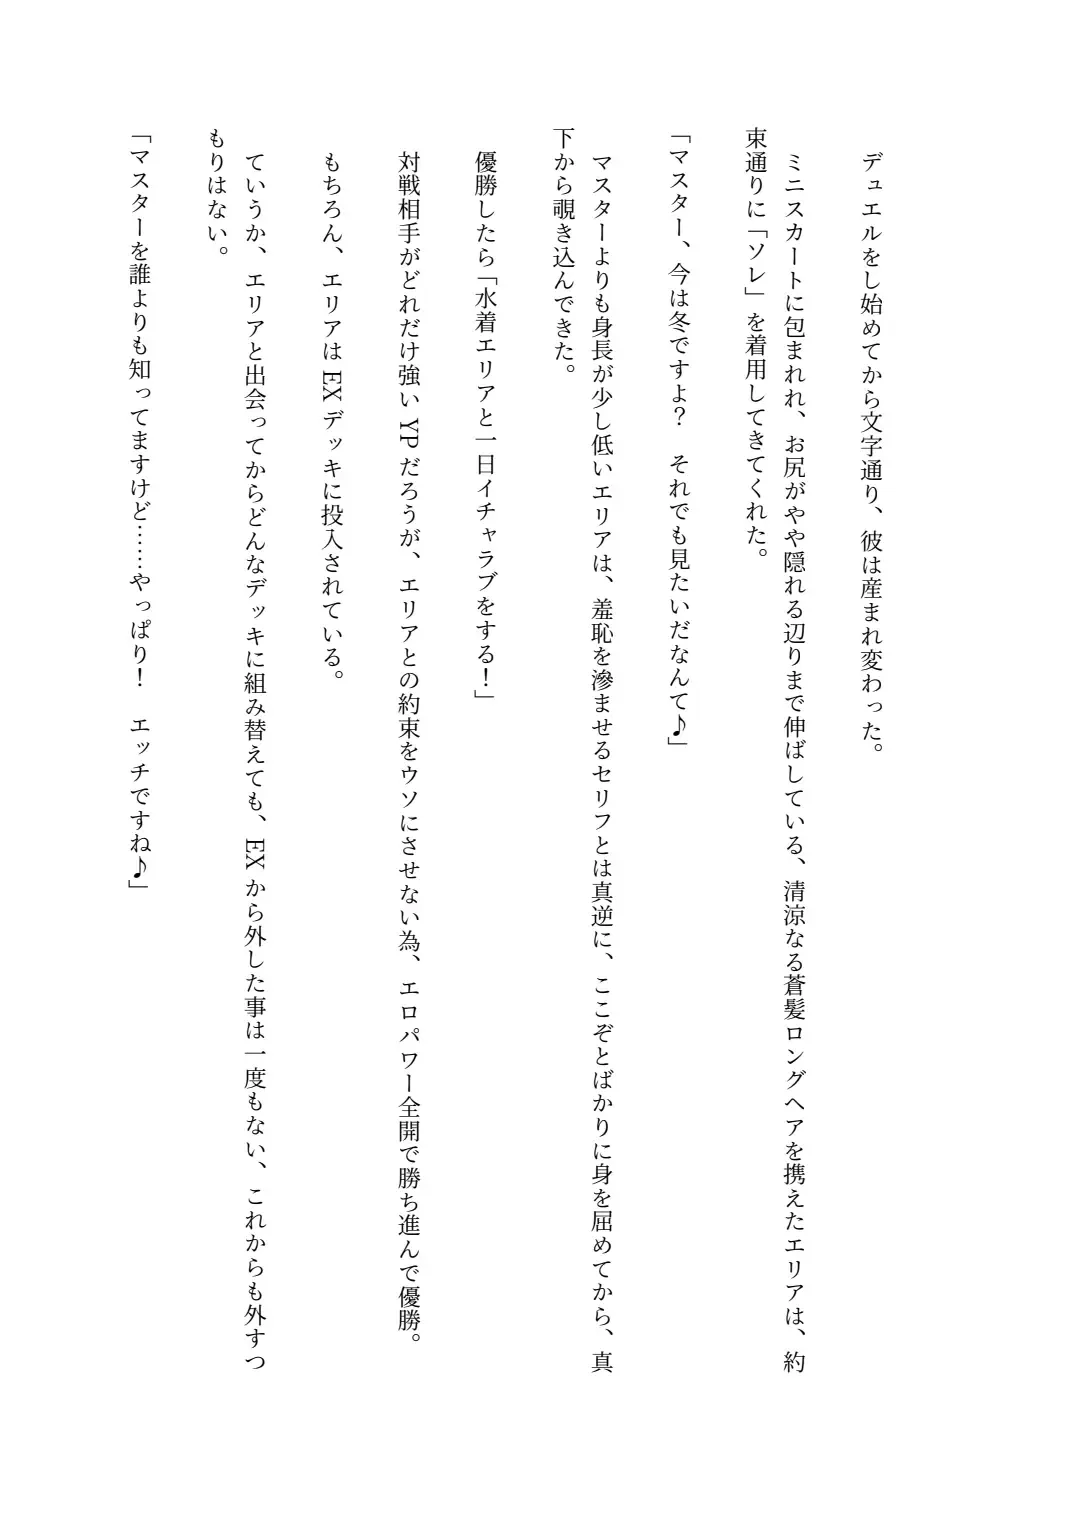 デュエルをし始めてから文字通り、彼は産まれ変わった。
ミニスカートに包まれれ、お尻がやや隠れる辺りまで伸ばしている、清涼なる蒼髪ロングヘアを携えたエリアは、約
束通りに「ソレ」を着用してきてくれた。
「マスター、今は冬ですよ？　それでも見たいだなんて♪」
マスターよりも身長が少し低いエリアは、羞恥を滲ませるセリフとは真逆に、ここぞとばかりに身を屈めてから、真
下から覗き込んできた。
優勝したら「水着エリアと一日イチャラブをする！」
対戦相手がどれだけ強い YP だろうが、エリアとの約束をウソにさせない為、エロパワー全開で勝ち進んで優勝。
もちろん、エリアは EX デッキに投入されている。
ていうか、エリアと出会ってからどんなデッキに組み替えても、EX から外した事は一度もない、これからも外すつ
もりはない。
「マスターを誰よりも知ってますけど……やっぱり！　エッチですね♪」